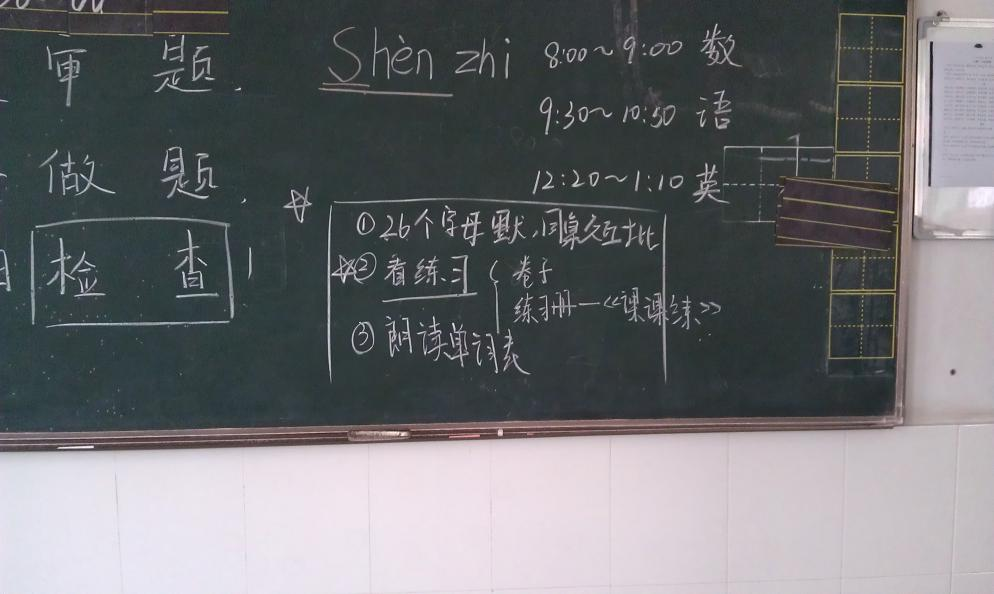 审 题.
做 题.
检 查 !
Shèn zhi
8:00~9:00 数
9:30~10:50 语
12:20~1:10 英
①26个字母默,同桌交互批
②看练习 { 卷子
练习册—《课课练》
③朗读单词表